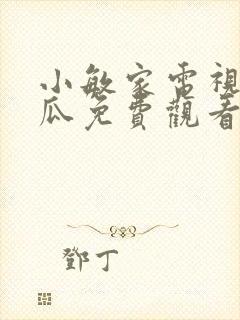 小敏家電視
瓜免費觀看
鄧丁